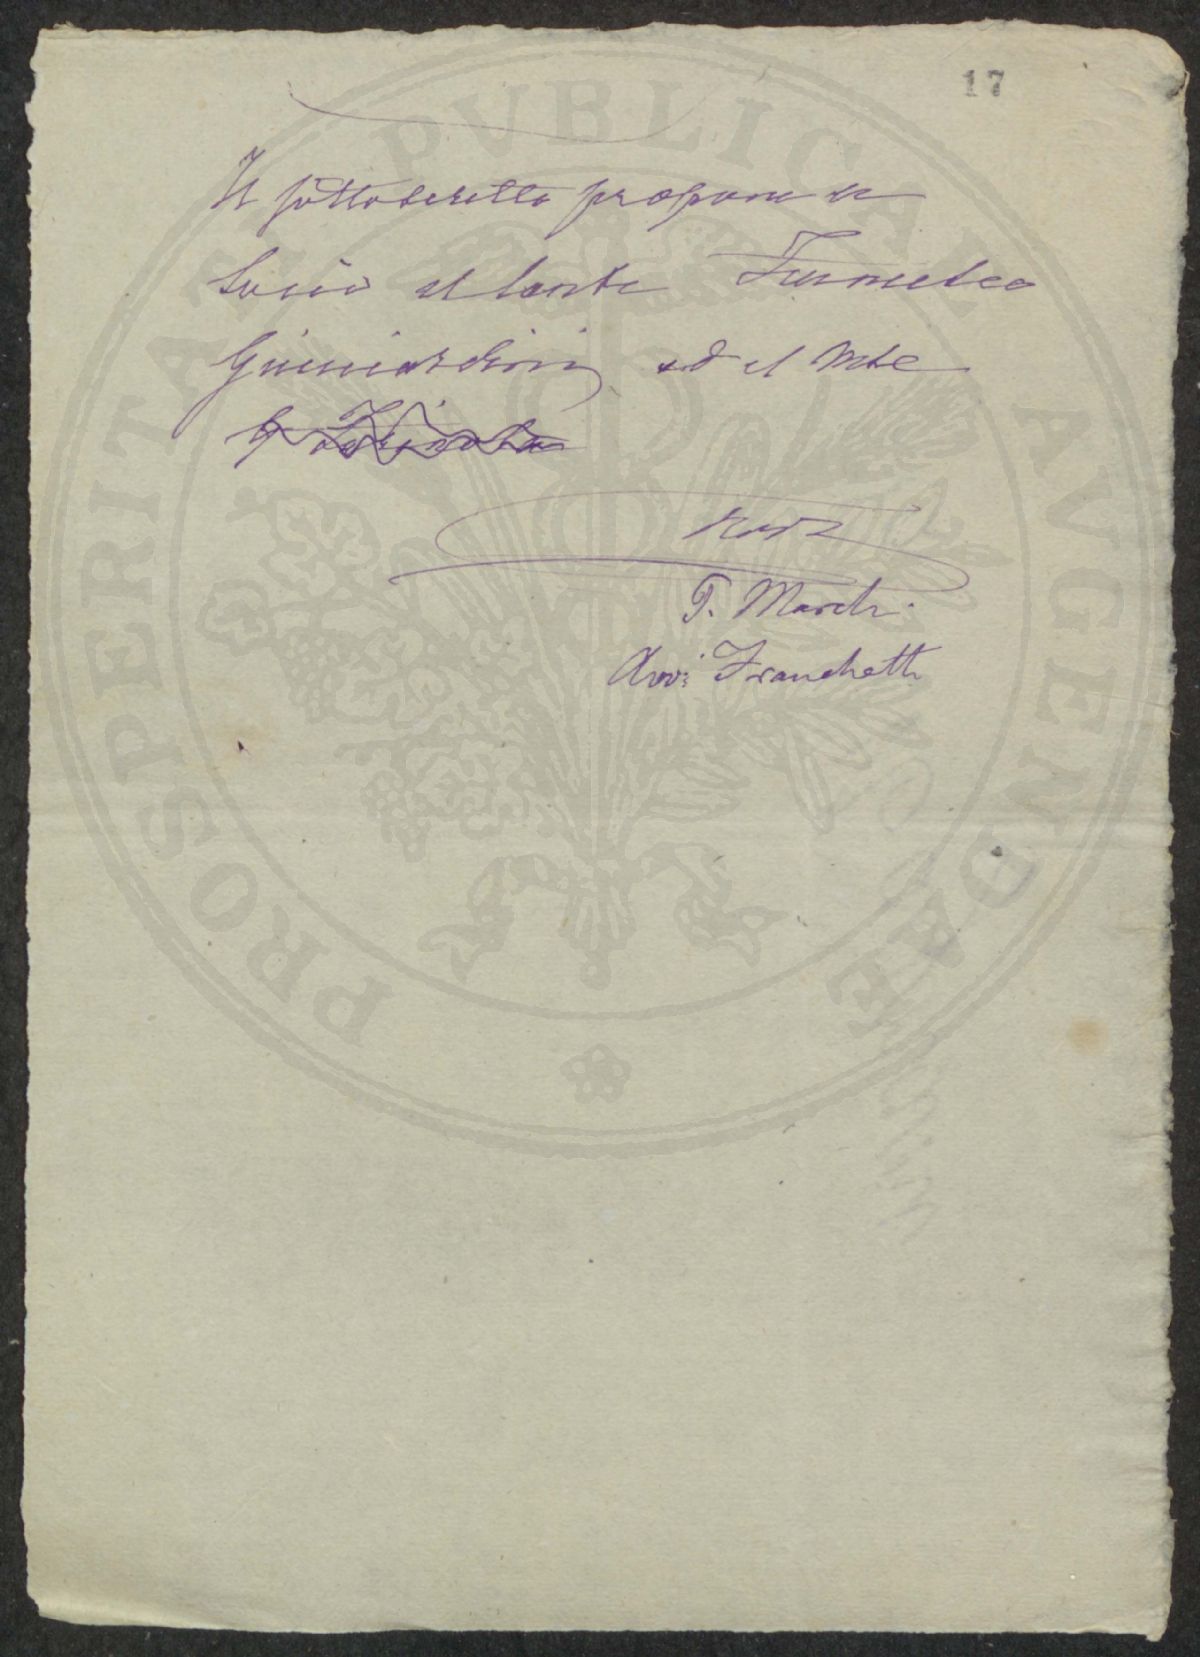 17
Il sottoscritto propone a
Socio il Conte Francesco
Guicciardini ed il Mse
T. Marchi
Avv: Franchetti
PROSPERITATI PVBLICAE AVGENDAE